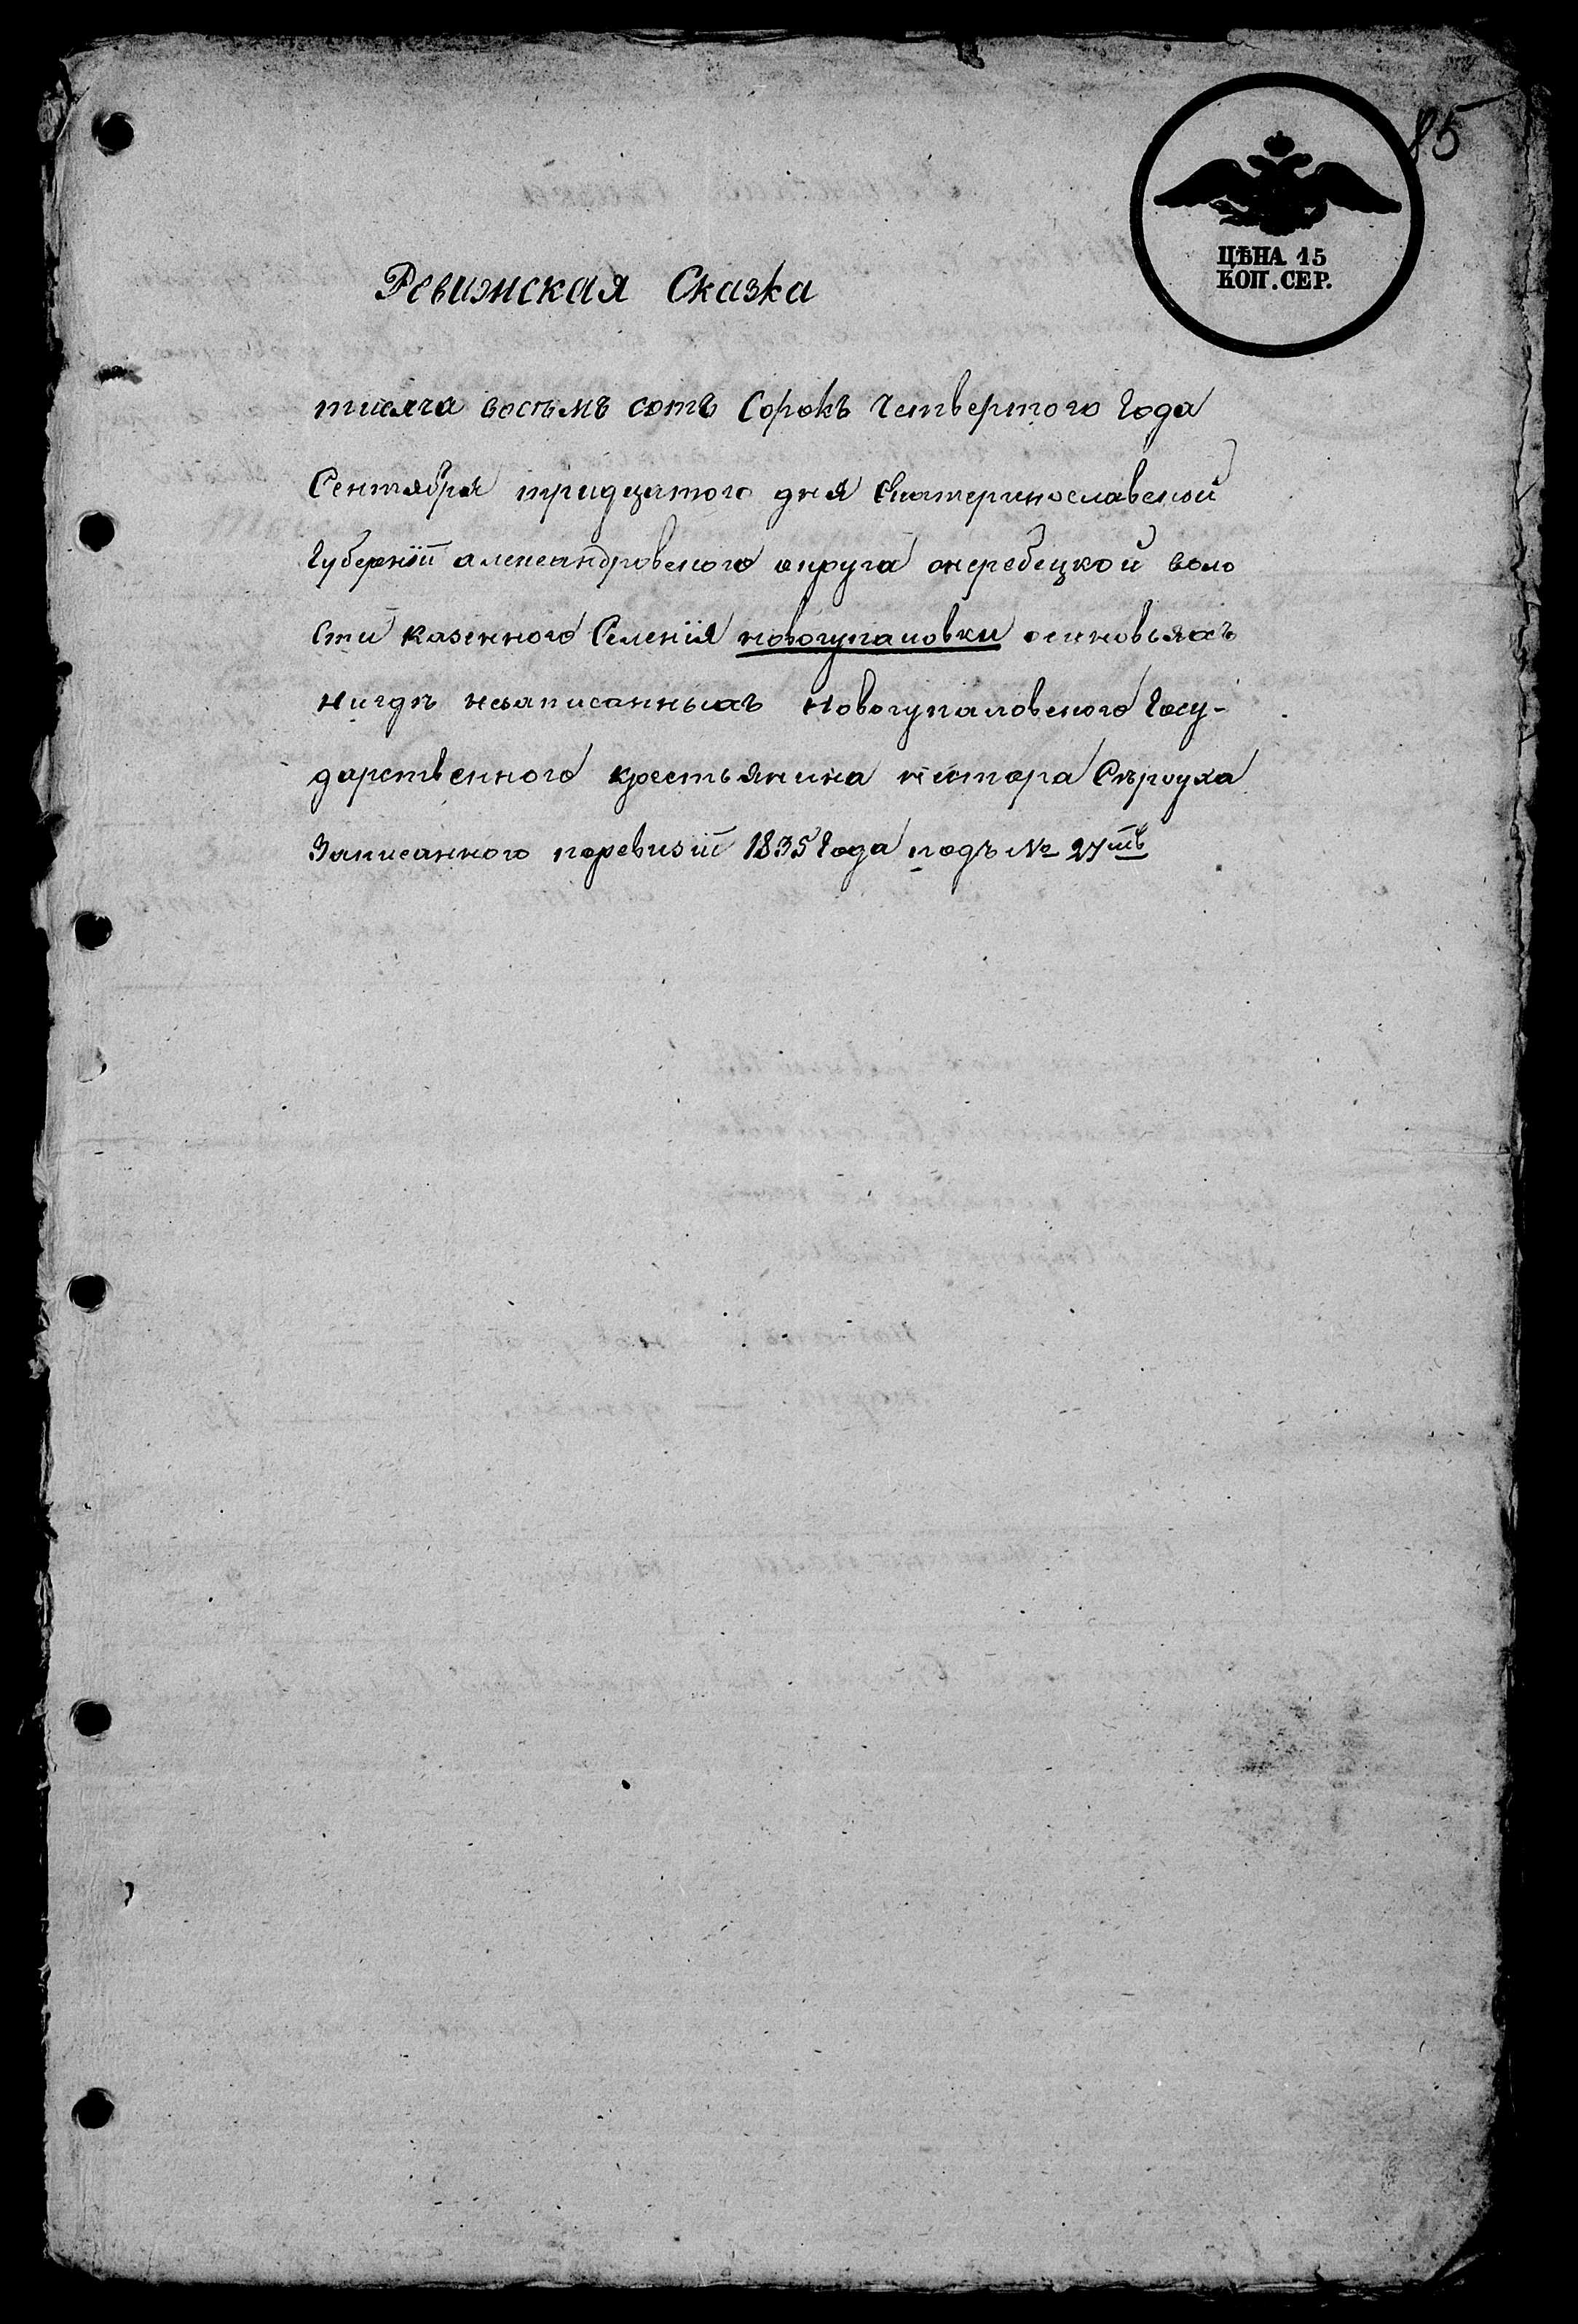 85
ЦѢНА 15
КОП. СЕР.
Ревижская Сказка
тисяча восемъ сотъ Сорокъ Четвертого Года
Сентября тридцатого дня Екатеринославской
Губернїи александровского округа жеребецкой воло
сти казенного Селенїя новогупаловки осиновьяхъ
нигдѣ незаписанныхъ новогупаловского Госу-
дарственного крестьянина нестора
Записанного поревизїи 1835 Года подъ № 27мъ